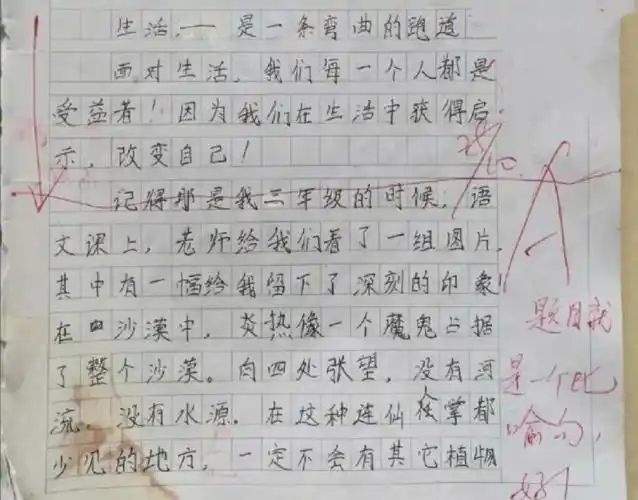 生活,—— 是一条弯曲的跑道
面对生活，我们每一个人都是
受益者！因为我们在生活中获得启
示，改变自己！
记得那是我三年级的时候，语
文课上，老师给我们看了一组图片，
其中有一幅给我留下了深刻的印象
在四沙漠中，炎热像一个魔鬼占据
了整个沙漠。向四处张望，没有河
流，没有水源。在这种连仙人掌都
少见的地方，一定不会有其它植物
A
题目就
是一个比
喻句，
好！